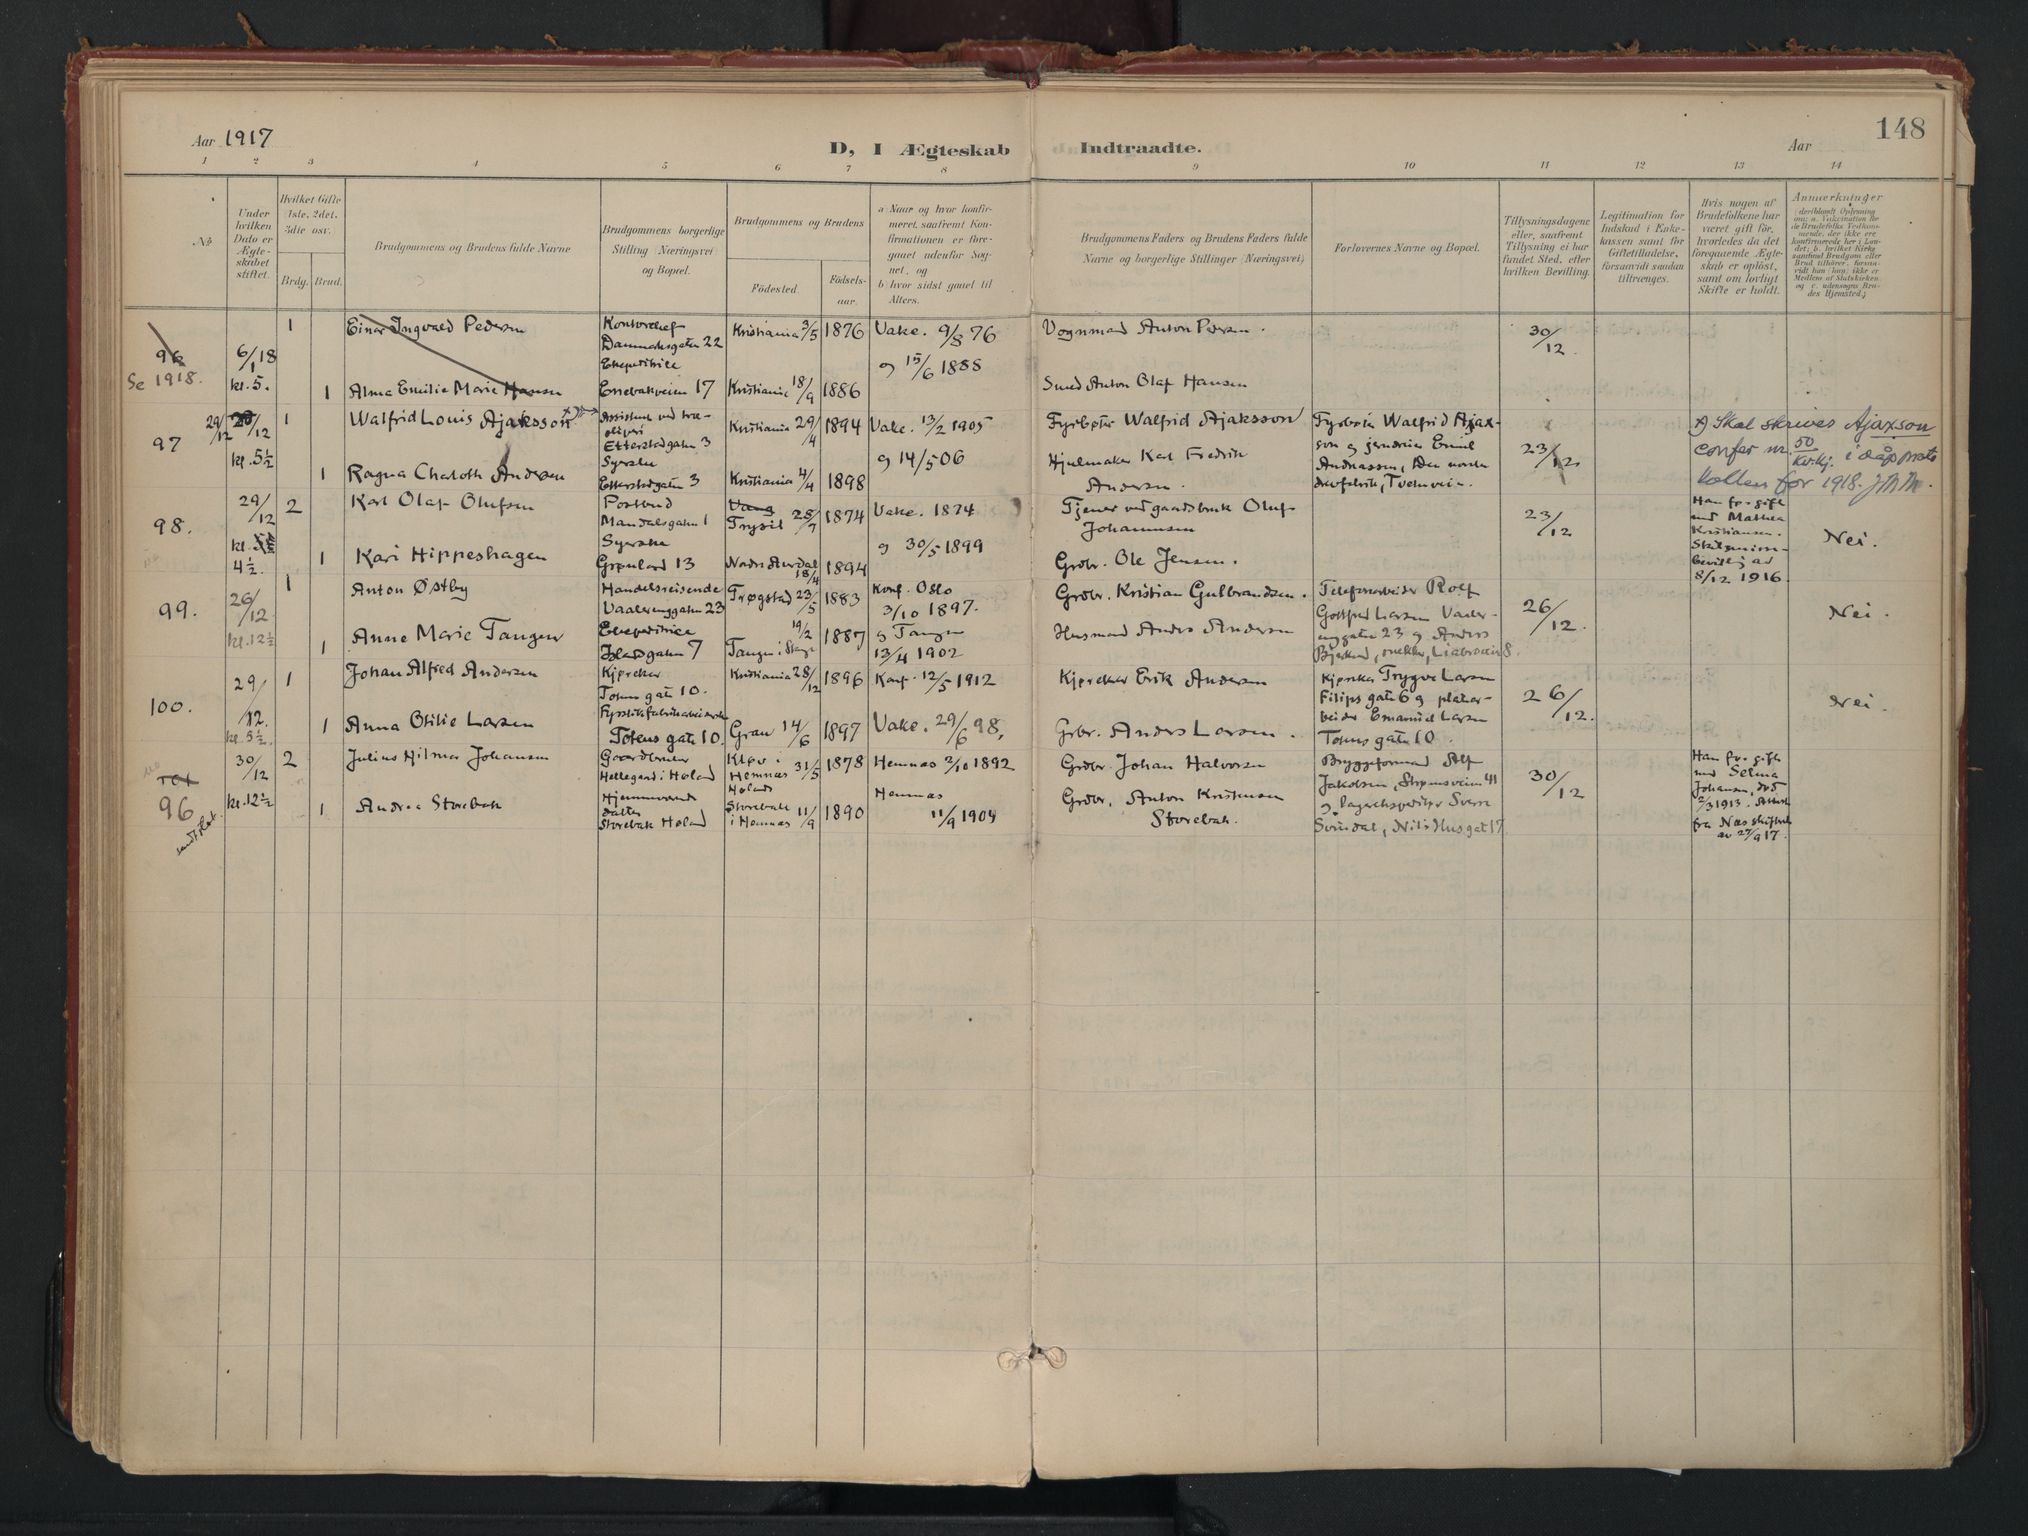 148
Aar 1917
D, I Ægteskab Indtraadte.
Aar
1 2 3 4 5 6 7 8 9 10 11 12 13 14
No
Under hvilken Dato er Ægte-skabet stiftet.
Hvilket Gifte 1ste, 2det, 3die osv.
Brdg. Brud.
Brudgommens og Brudens fulde Navne
Brudgommens borgerlige Stilling (Næringsvei) og Bopæl.
Brudgommens og Brudens
Fødested. Fødsels-aar.
a) Naar og hvor konfir-meret, saafremt Kon-firmationen er fore-gaaet udenfor Sog-net, og
b) hvor sidst gaaet til Alters.
Brudgommens Faders og Brudens Faders fulde Navne og borgerlige Stillinger (Næringsvei)
Forlovernes Navne og Bopæl.
Tillysningsdagene eller, saafremt Tillysning ei har fundet Sted, efter hvilken Bevilling.
Legitimation for Indskud i Enke-kassen samt for Giftetilladelse, forsaavidt saadan tiltrænges.
Hvis nogen af Brudefolkene har været gift før, hvorledes da det foregaaende Ægte-skab er opløst, samt om lovligt Skifte er holdt.
Anmærkninger
96
Se 1918.
6/1 18
kl. 5.
1
Einar Ingvald Pedersen
Kontorchef
Danmarksgaten 22
Kristiania 3/5 1876
Vake. 9/8 76
Vognmand Anton Pedersen.
30/12.
Ekspeditrice
og 15/6 1888
1 Alma Emilie Marie Hansen
17
Kristiania 18/9 1886
Smed Anton Olaf Hansen
97
29/12
kl. 5½
1
Walfrid Louis Ajaksson
Assistent ved
Etterstadgaten 3
Kristiania 29/4 1894
Vake 13/2 1905
Fyrbøter Walfrid Ajaksson
Fyrbøter Walfrid Ajax-
son og Emil
Andreassen, Den norske
Tvetenvein.
23/12
x) Skal skrives Ajaxson
confer nr. 50 i dåpsproto
kollen for 1918.
Syerske
Etterstadgaten 3
1 Ragna Charloth Andersen
Kristiania 4/4 1898
og 14/5 06
Hjulmaker Karl Fredrik
Andersen.
98.
29/12
kl.
4½
2
Karl Olaf Olufsen
Postbud
Mandalsgaten 1
Vang
Trysil 28/7 1874
Vake. 1874
Tjener ved gaardsbruk Oluf
Johannesen
23/12
Han før gift
med Mathea
Kristiansen.
bevilling av
8/12 1916
Nei.
1 Kari Hippeshagen
Syerske
Grønland 13
Nordre Aurdal 18/4 1894
og 30/5 1899
Grdbr. Ole Jensen.
99.
26/12
kl. 12½
1
Anton Østby
Handelsreisende
Vaalerenggaten 23
Trøgstad 23/5 1883
Konf. Oslo
3/10 1897.
Grdbr. Kristian Gulbrandsen.
Telefonarbeider Rolf
Gottfred Larsen Vaaler-
enggaten 23 og Anders
Bjerkerud, snekker, Liabroveien 8.
26/12.
Nei.
1 Anne Marie Tangen
Ekspeditrice
Islandsgaten 7
Tangen i Stange 19/2 1887
og Tangen
13/4 1902
Husmand Anders Andersen
100.
29/12.
kl. 5½.
1
Johan Alfred Andersen
Kjørekar
Totens gate 10.
Kristiania 28/12 1896
Konf. 12/5 1912
Kjørekar Erik Andersen
Kjøreker Trygve Larsen
Filips gate 6 og platear-
beider Emanuel Larsen
Totens gate 10.
26/12.
Nei.
1 Anna Otilie Larsen
Fyrstikfabrikarbeiderske
Totens gate 10.
Gran 14/6 1897
Vake. 29/6 98.
Grbr. Anders Larsen.
101
96
30/12
kl. 12½
2
Julius Hilmar Johansen
Gaardbruker
Hellegaard i Høland
Kløv i
Hemnes 31/5 1878
Høland
Hemnes 2/10 1892
Grdbr. Johan Halvorsen
Bryggeformand Alf
Jakobsen, Strømsveien 41
og lagerekspeditør Sverre
Svindal, Nils Hus gt 17
30/12
Han før gift
med Selma
Johansen, død
2/3 1913. Attest
fra Næs skifteret
av 27/9 17.
1 Andrea Storebak
Hjemmeværende
datter
Storebak Høland
Storebak
i Hemnes 11/9 1890
Hemnes
11/9 1904
Grdbr. Anton Kristensen
Storebak.